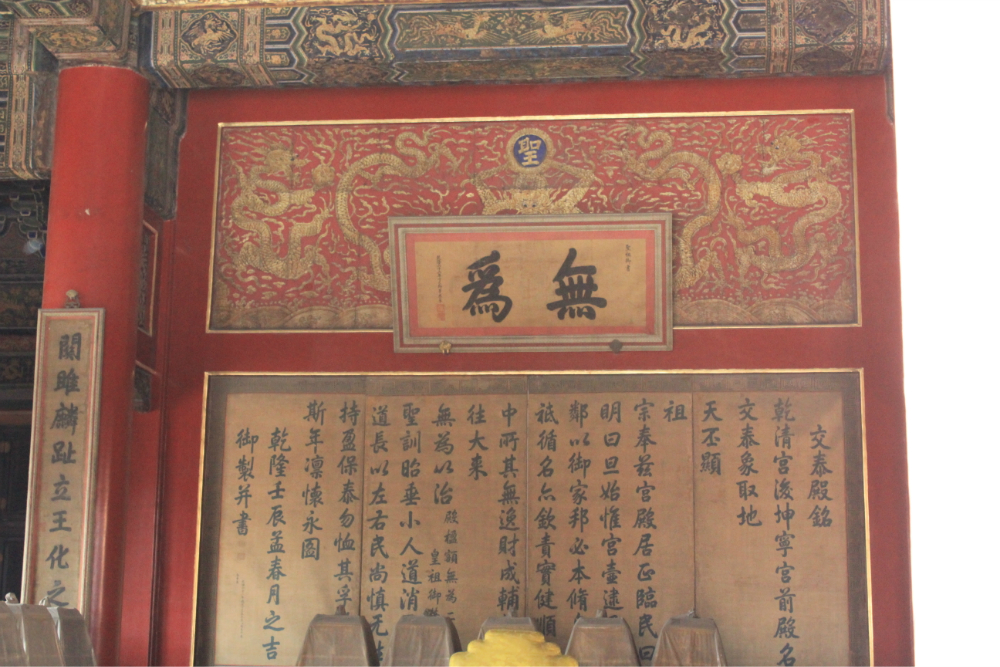 聖
無為
交泰殿銘
乾清宮後坤寧宮前殿名
交泰象取地
天丕顯
祖
宗奉茲宮殿居正臨民曰
明曰旦始惟宮壼逮
鄰以御家邦必本脩
祗循名亦欽責實健順
中所其無逸財成輔
往大來
無為以治殿楹額無為
皇祖御
聖訓昭垂小人道消
道長以左右民尚慎无
持盈保泰勿恤其孚
斯年凜懷永圖
乾隆壬辰孟春月之吉
御製并書
關雎麟趾立王化之